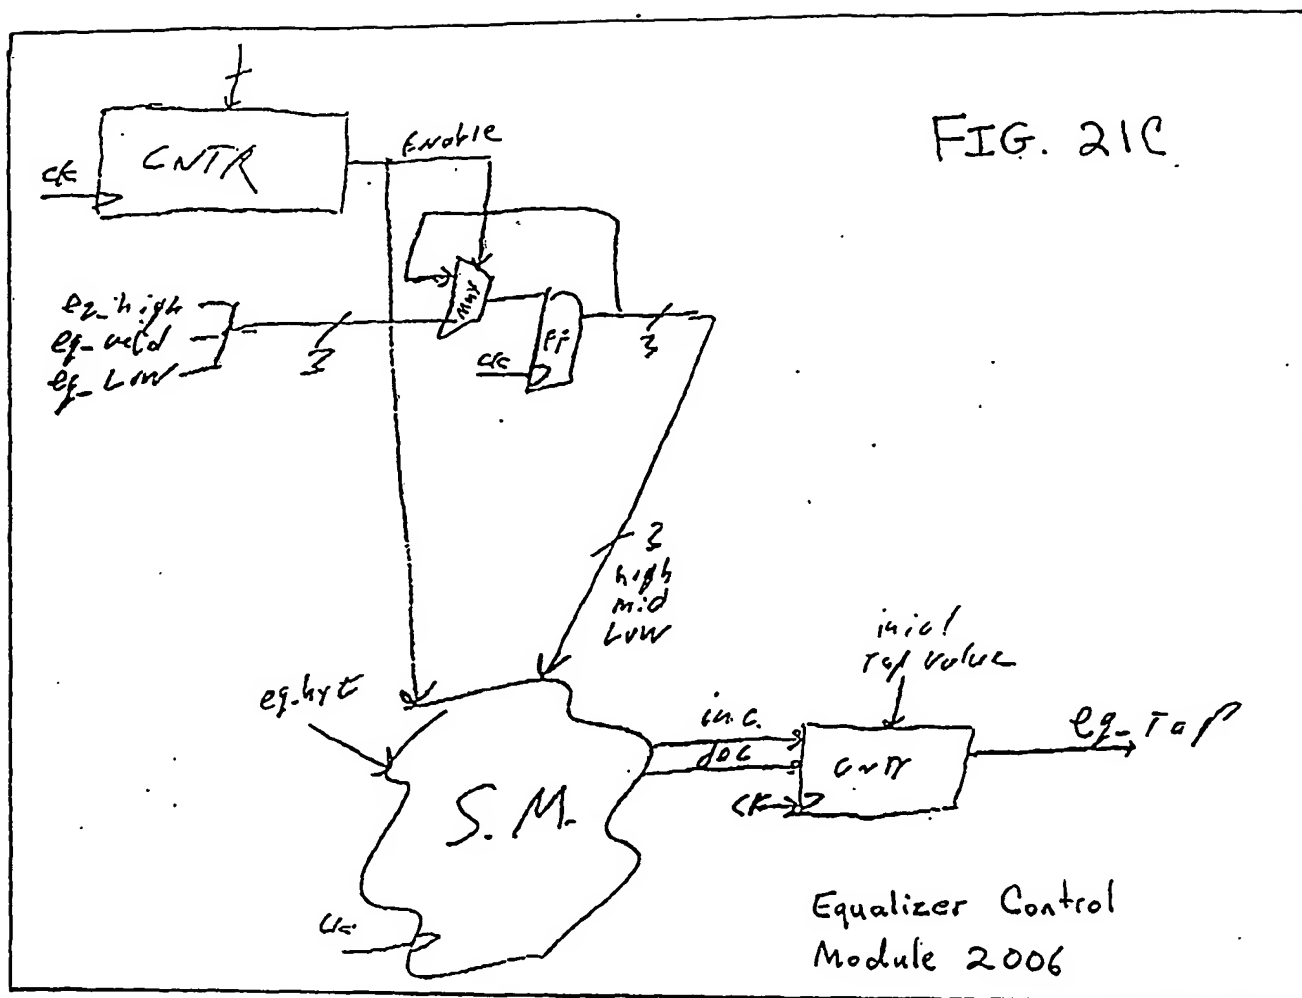 FIG. 21C
CNTR
clk
Enable
Mux
eq_high
eq_
eq_Low
3
clk
FF
3
3
high
mid
Low
eq_hyt
S.M.
clk
inc.
dec
Tap value
CNTR
clk
eq_Tap
Equalizer Control
Module 2006